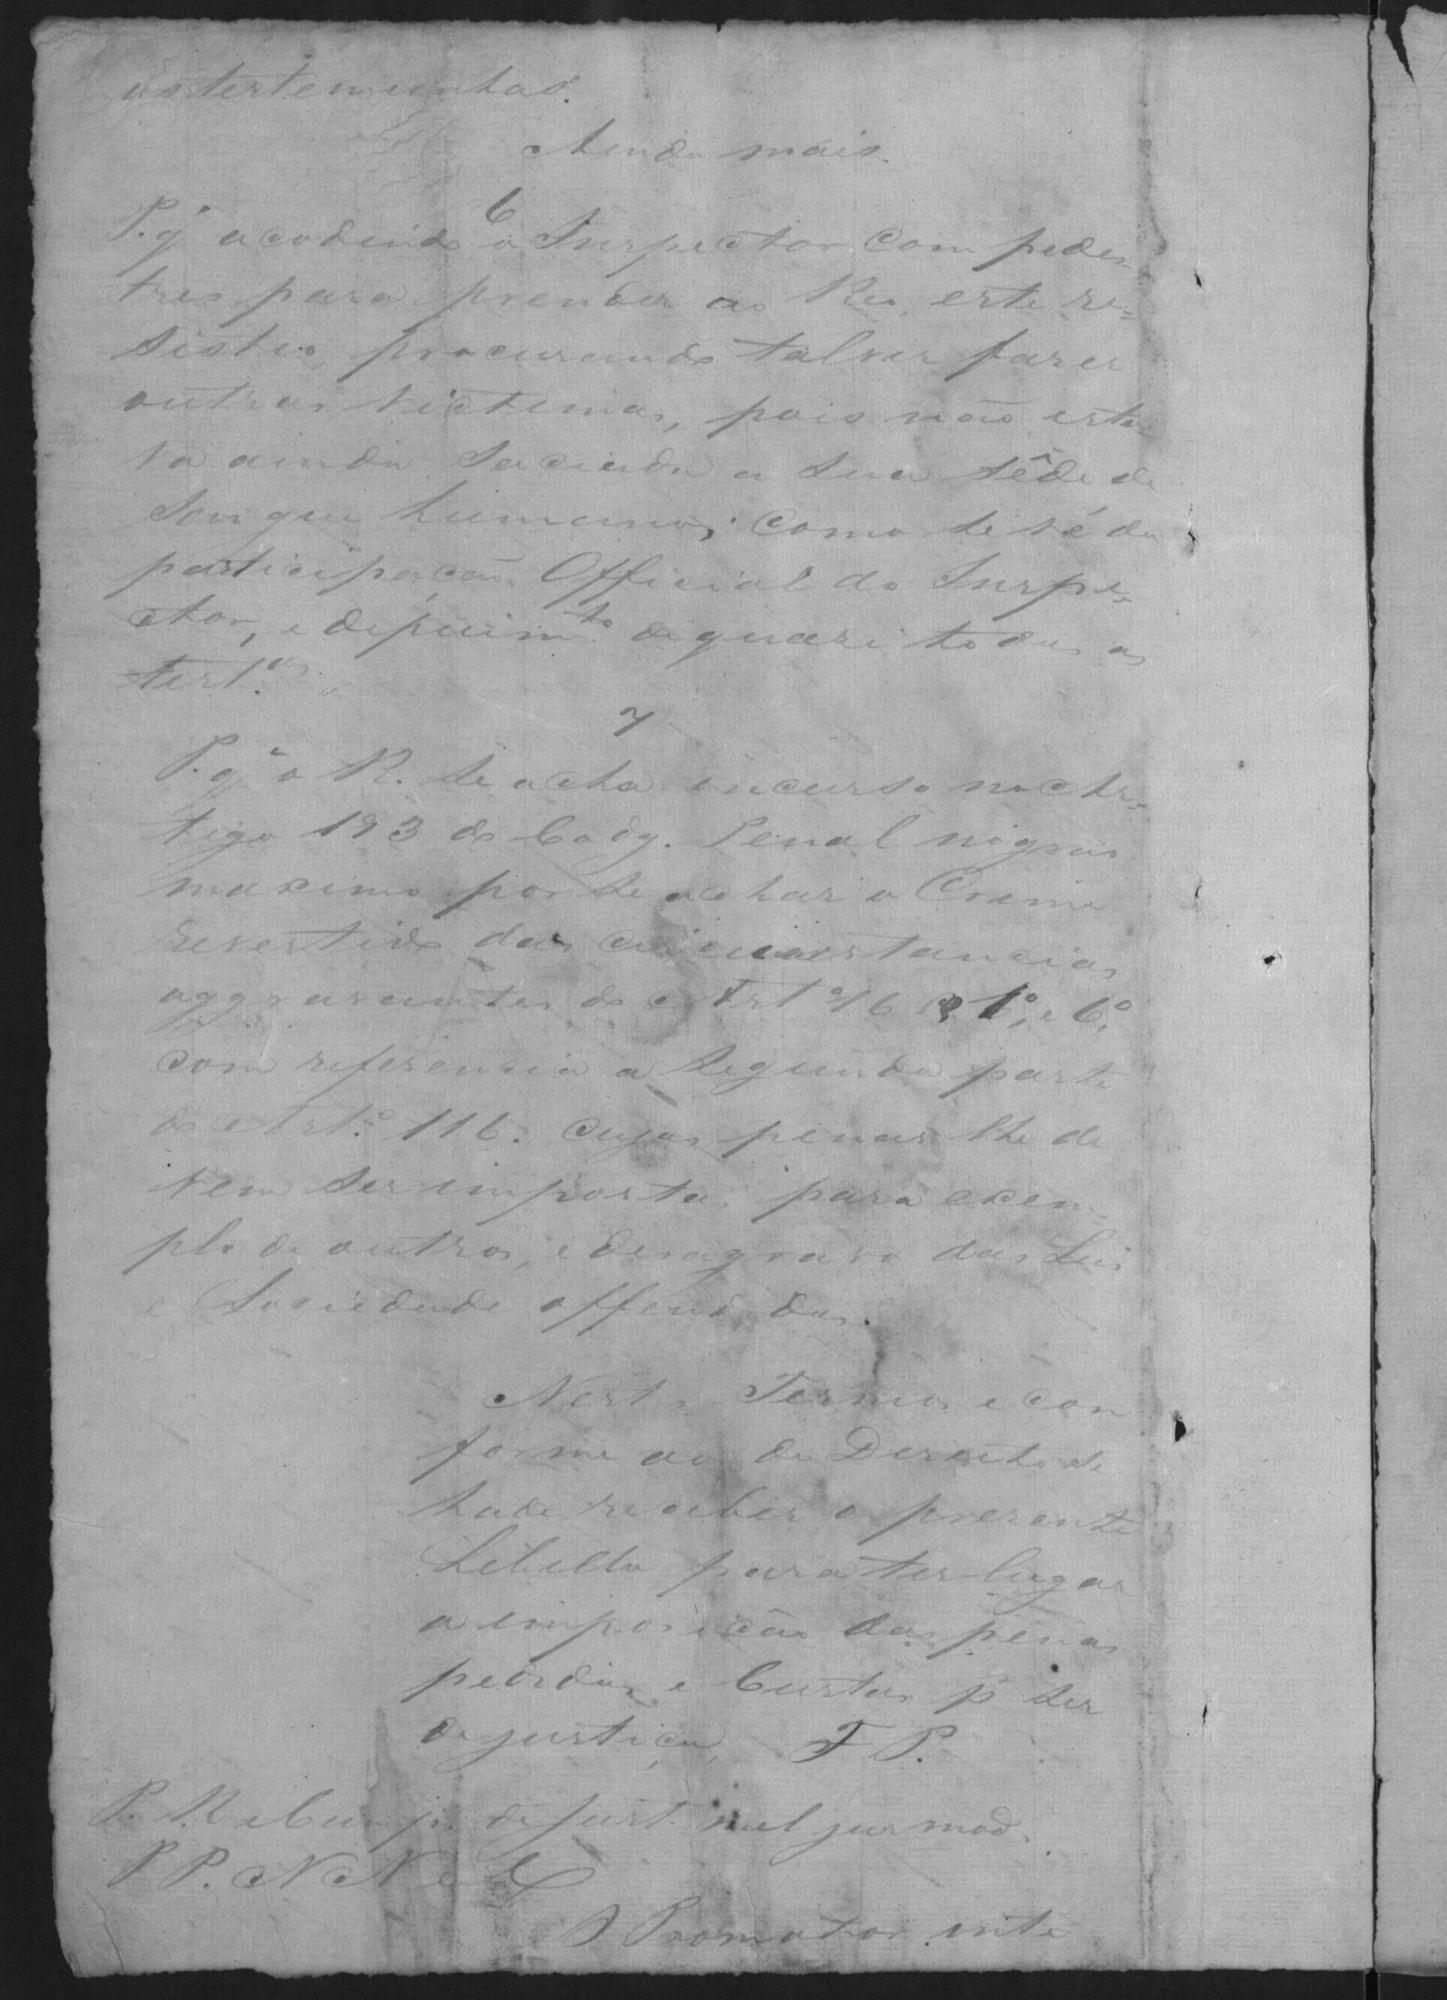 as testemunhas.
Ainda mais.
6
P. q' acodindo o Inspector com pedes-
tres para prender ao Reo, este re-
sistio, procurando talvez fazer
outras victimas, pois não esta-
va ainda saciada a sua sêde de
sangue humano; como se vê da
participação Official do Inspe-
ctor, e depuim.to de quasi todas as
test.as
7
P. q' o R. se acha incurso no Ar-
tigo 193 do Codg. Penal no grao
maximo por se achar o Crime
revestido das circunstancias
aggravantes do Art.º 16 § 1º, e 6º,
com referencia a segunda parte
do Art.º 116. cujas penas lhe de
vem ser impostas para exem-
plo de outros, e desagravo das Leis
e Sociedade offendidas.
Nestes Termos e con
forme ao de Direito se
hade receber o presente
Libello para ter lugar
a imposição das penas
pedidas e Custas p ser
de justiça
F. P.
P. R. e Cump. de Just. mel jur mod.
P P. N N e C
O Promotor inte